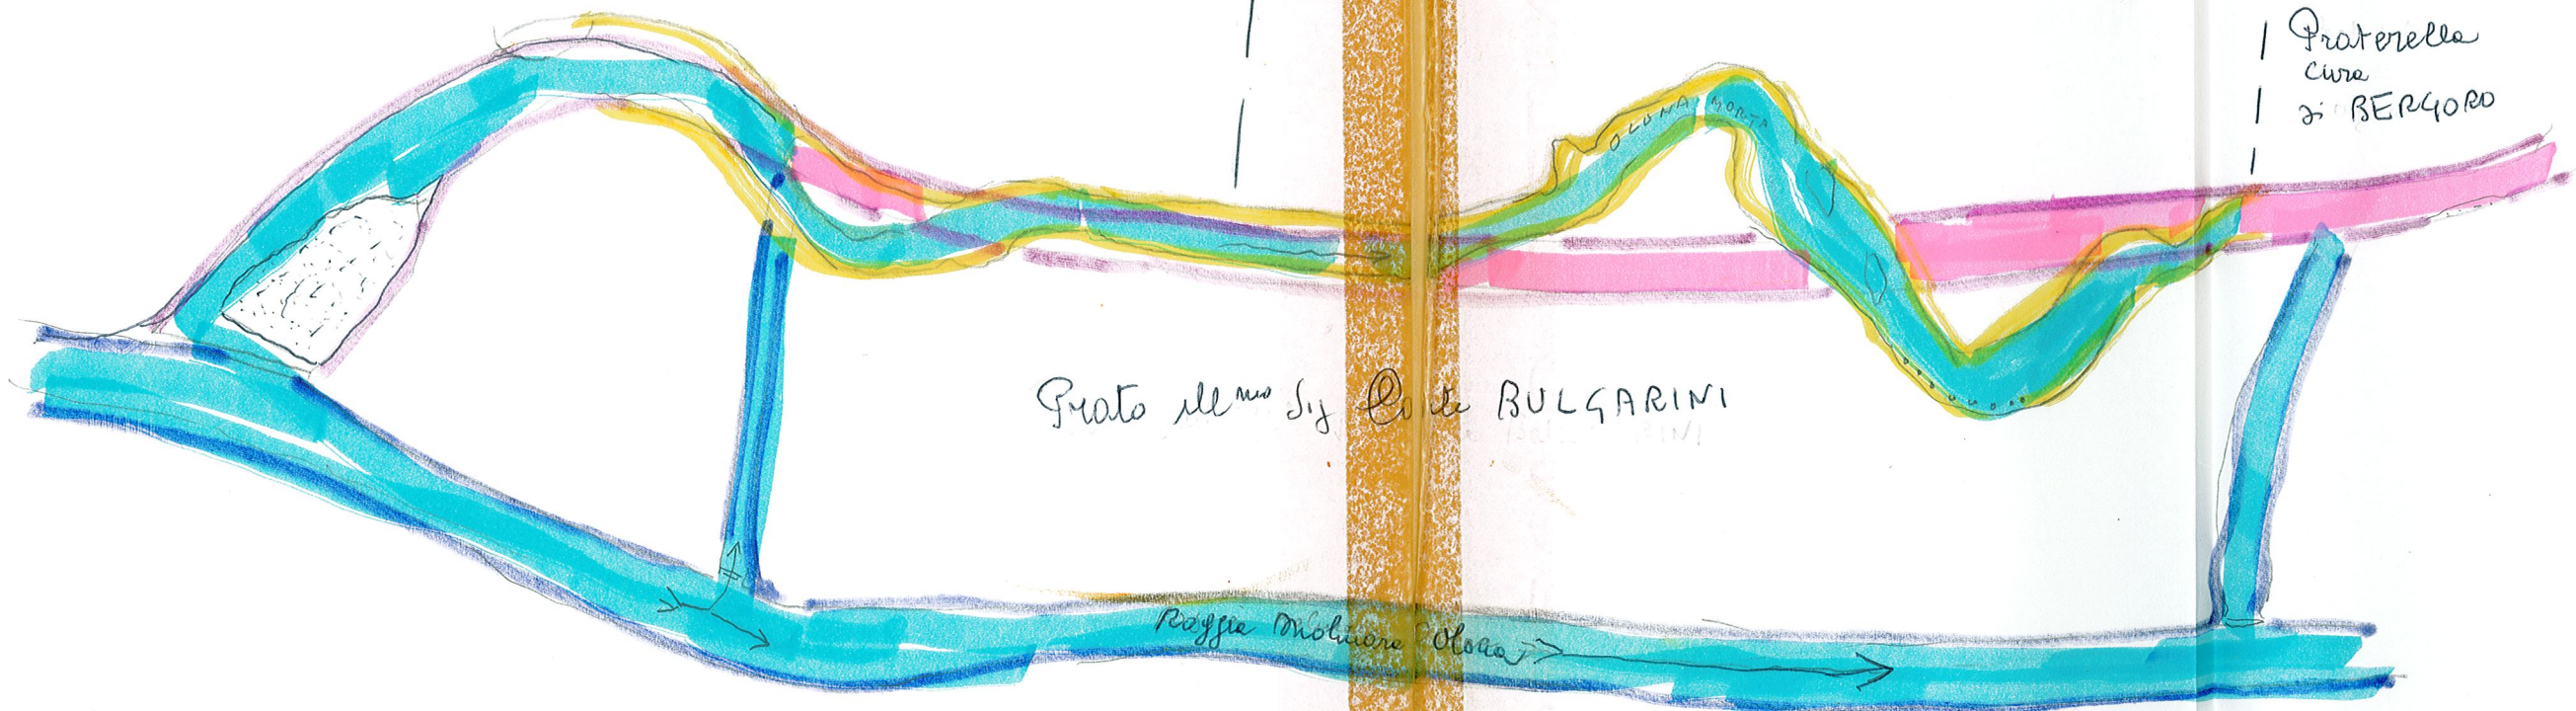 Praterella
Cura
di BERGORO
OLONA MORTA
Prato Ill mo Sig Conte BULGARINI
Roggia Molinara Olona